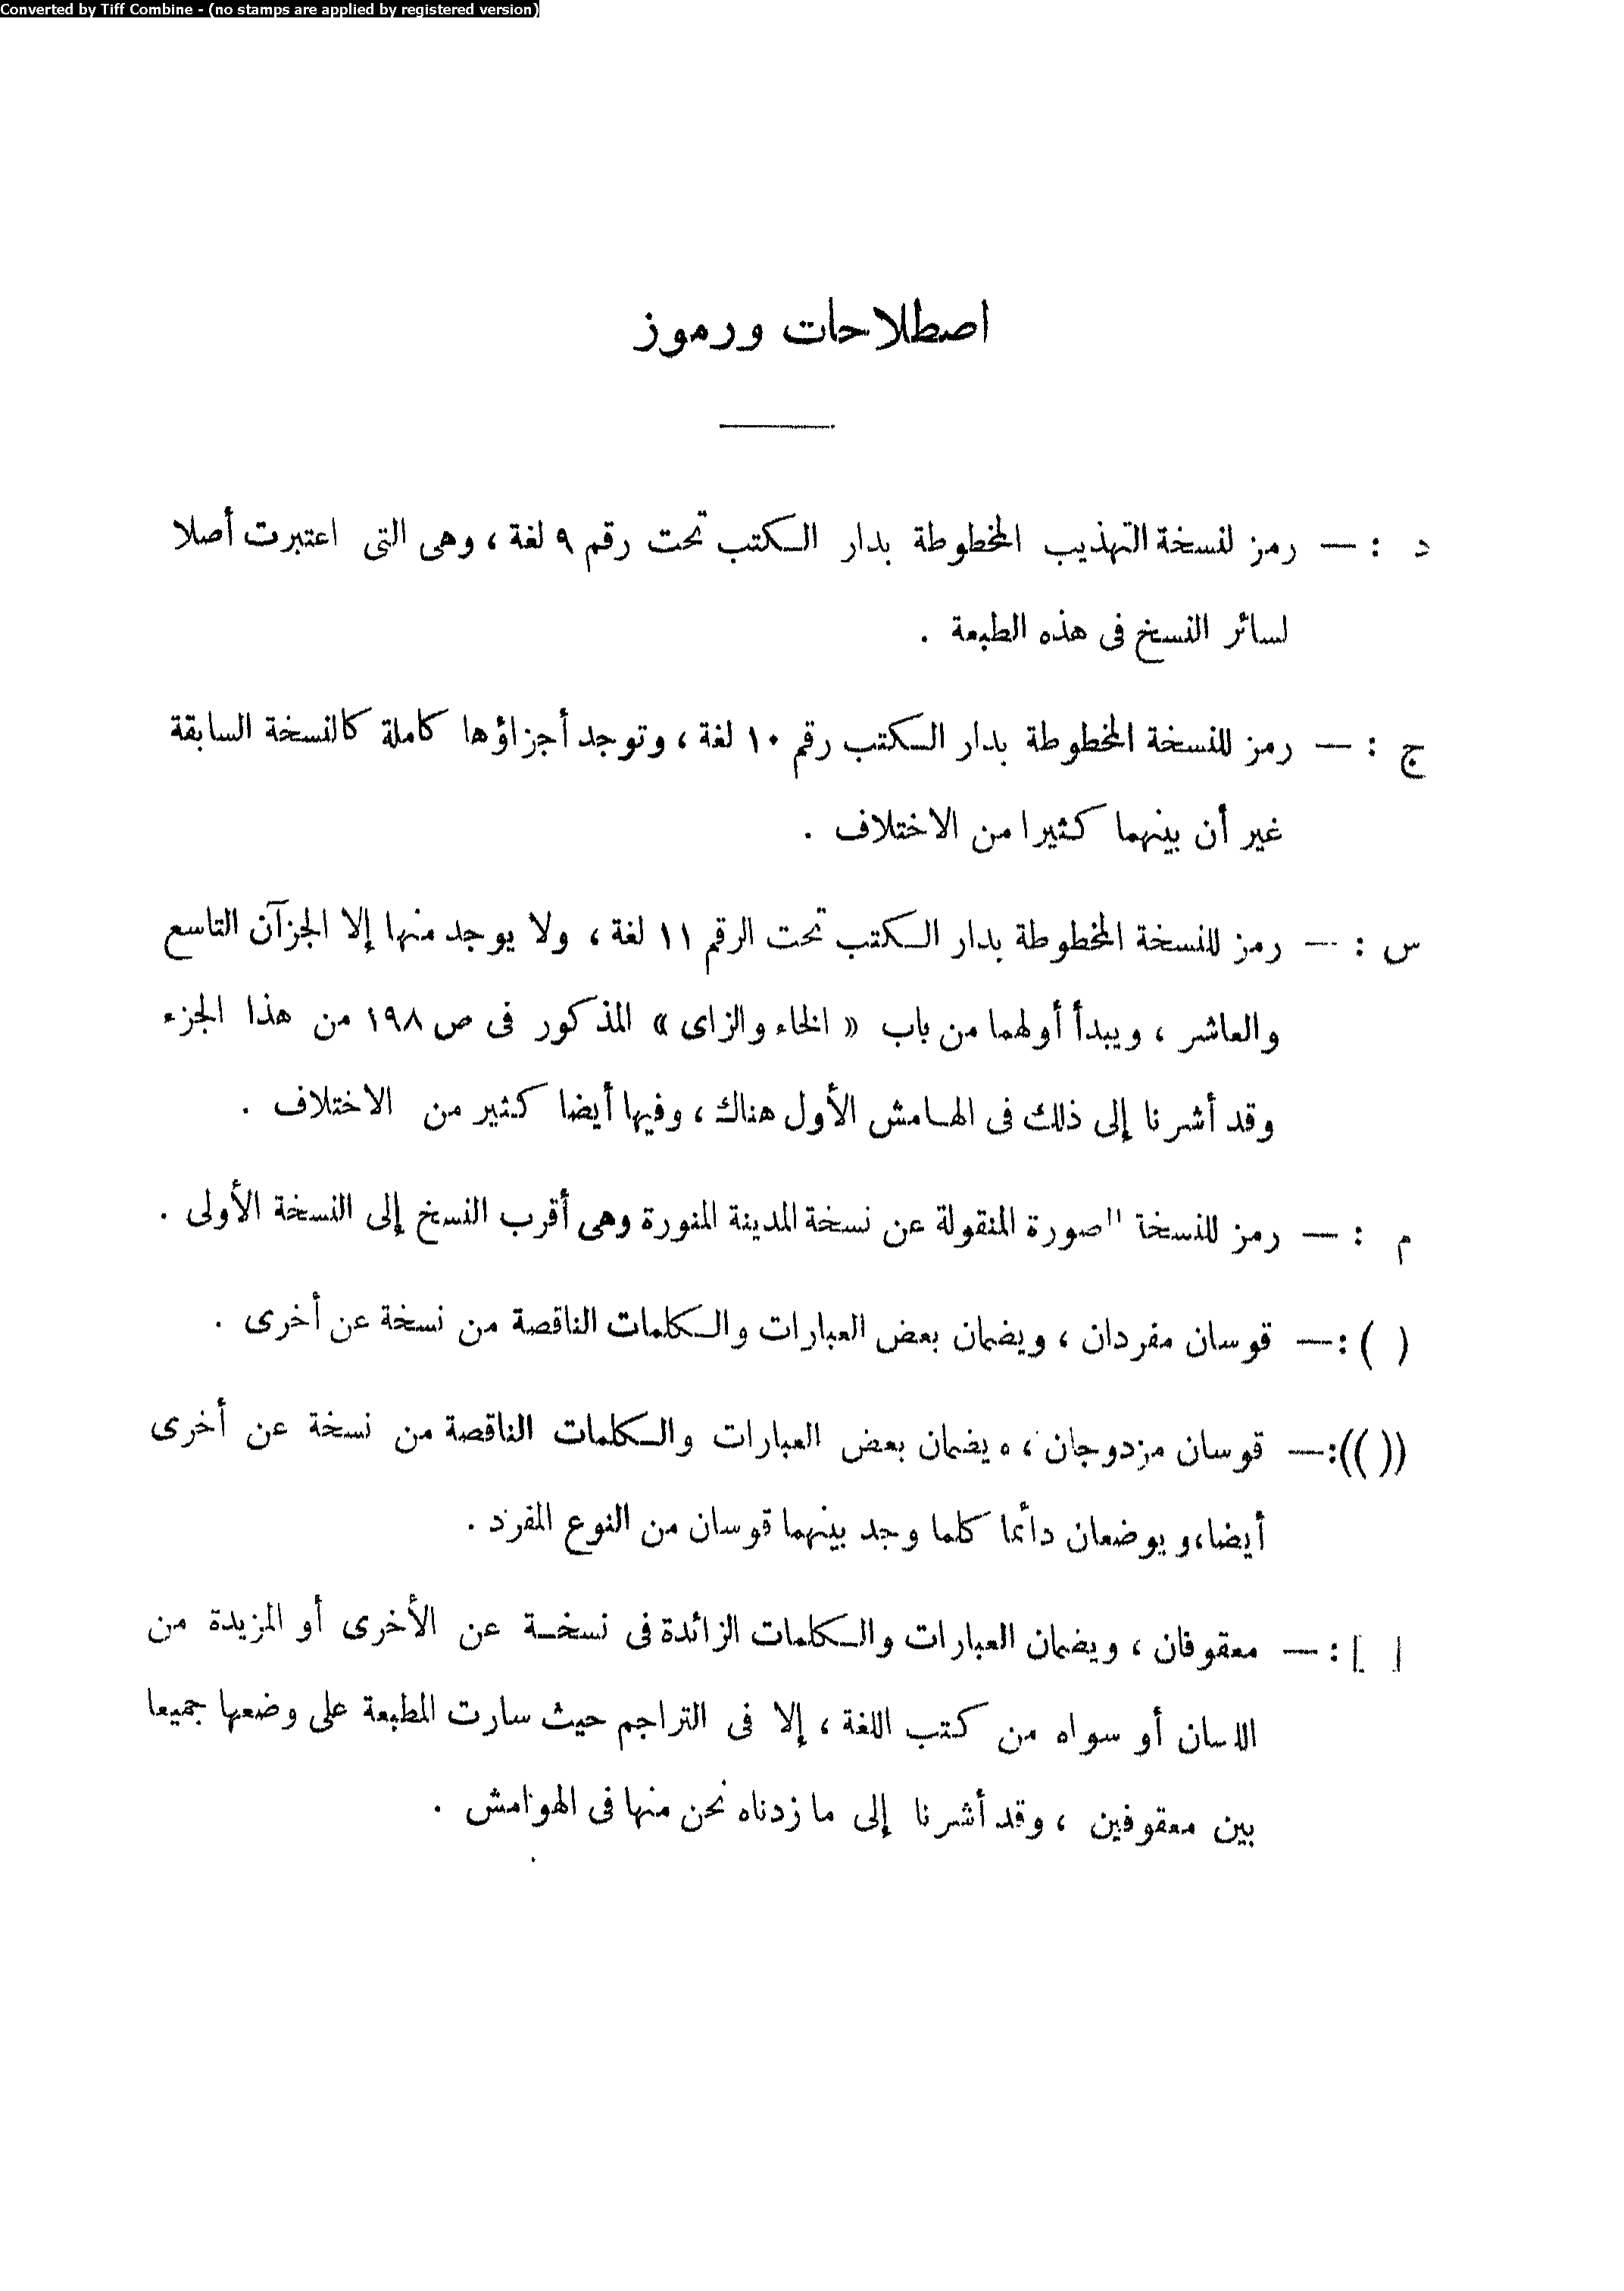 Converted by Tiff Combine - (no stamps are applied by registered version)
اصطلاحات ورموز
د : — رمز لنسخة التهذيب المخطوطة بدار الكتب تحت رقم ٩ لغة ، وهى التى اعتبرت أصلا
لسائر النسخ فى هذه الطبعة .
ج : — رمز للنسخة المخطوطة بدار الكتب رقم ١٠ لغة ، وتوجد أجزاؤها كاملة كالنسخة السابقة
غير أن بينهما كثيرا من الاختلاف .
س : — رمز للنسخة المخطوطة بدار الكتب تحت الرقم ١١ لغة ، ولا يوجد منها إلا الجزآن التاسع
والعاشر ، ويبدأ أولهما من باب « الخاء والزاى » المذكور فى ص ١٩٨ من هذا الجزء
وقد أشرنا إلى ذلك فى الهامش الأول هناك ، وفيها أيضا كثير من الاختلاف .
م : — رمز للنسخة المصورة المنقولة عن نسخة المدينة المنورة وهى أقرب النسخ إلى النسخة الأولى .
( ) : — قوسان مفردان ، ويضمان بعض العبارات والكلمات الناقصة من نسخة عن أخرى .
(( )) : — قوسان مزدوجان ، ويضمان بعض العبارات والكلمات الناقصة من نسخة عن أخرى
أيضا، ويوضعان دائما كلما وجد بينهما قوسان من النوع المفرد .
[ ] : — معقوفان ، ويضمان العبارات والكلمات الزائدة فى نسخة عن الأخرى أو المزيدة من
اللسان أو سواه من كتب اللغة ، إلا فى التراجم حيث سارت المطبعة على وضعها جميعا
بين معقوفين ، وقد أشرنا إلى ما زدناه نحن منها فى الهوامش .